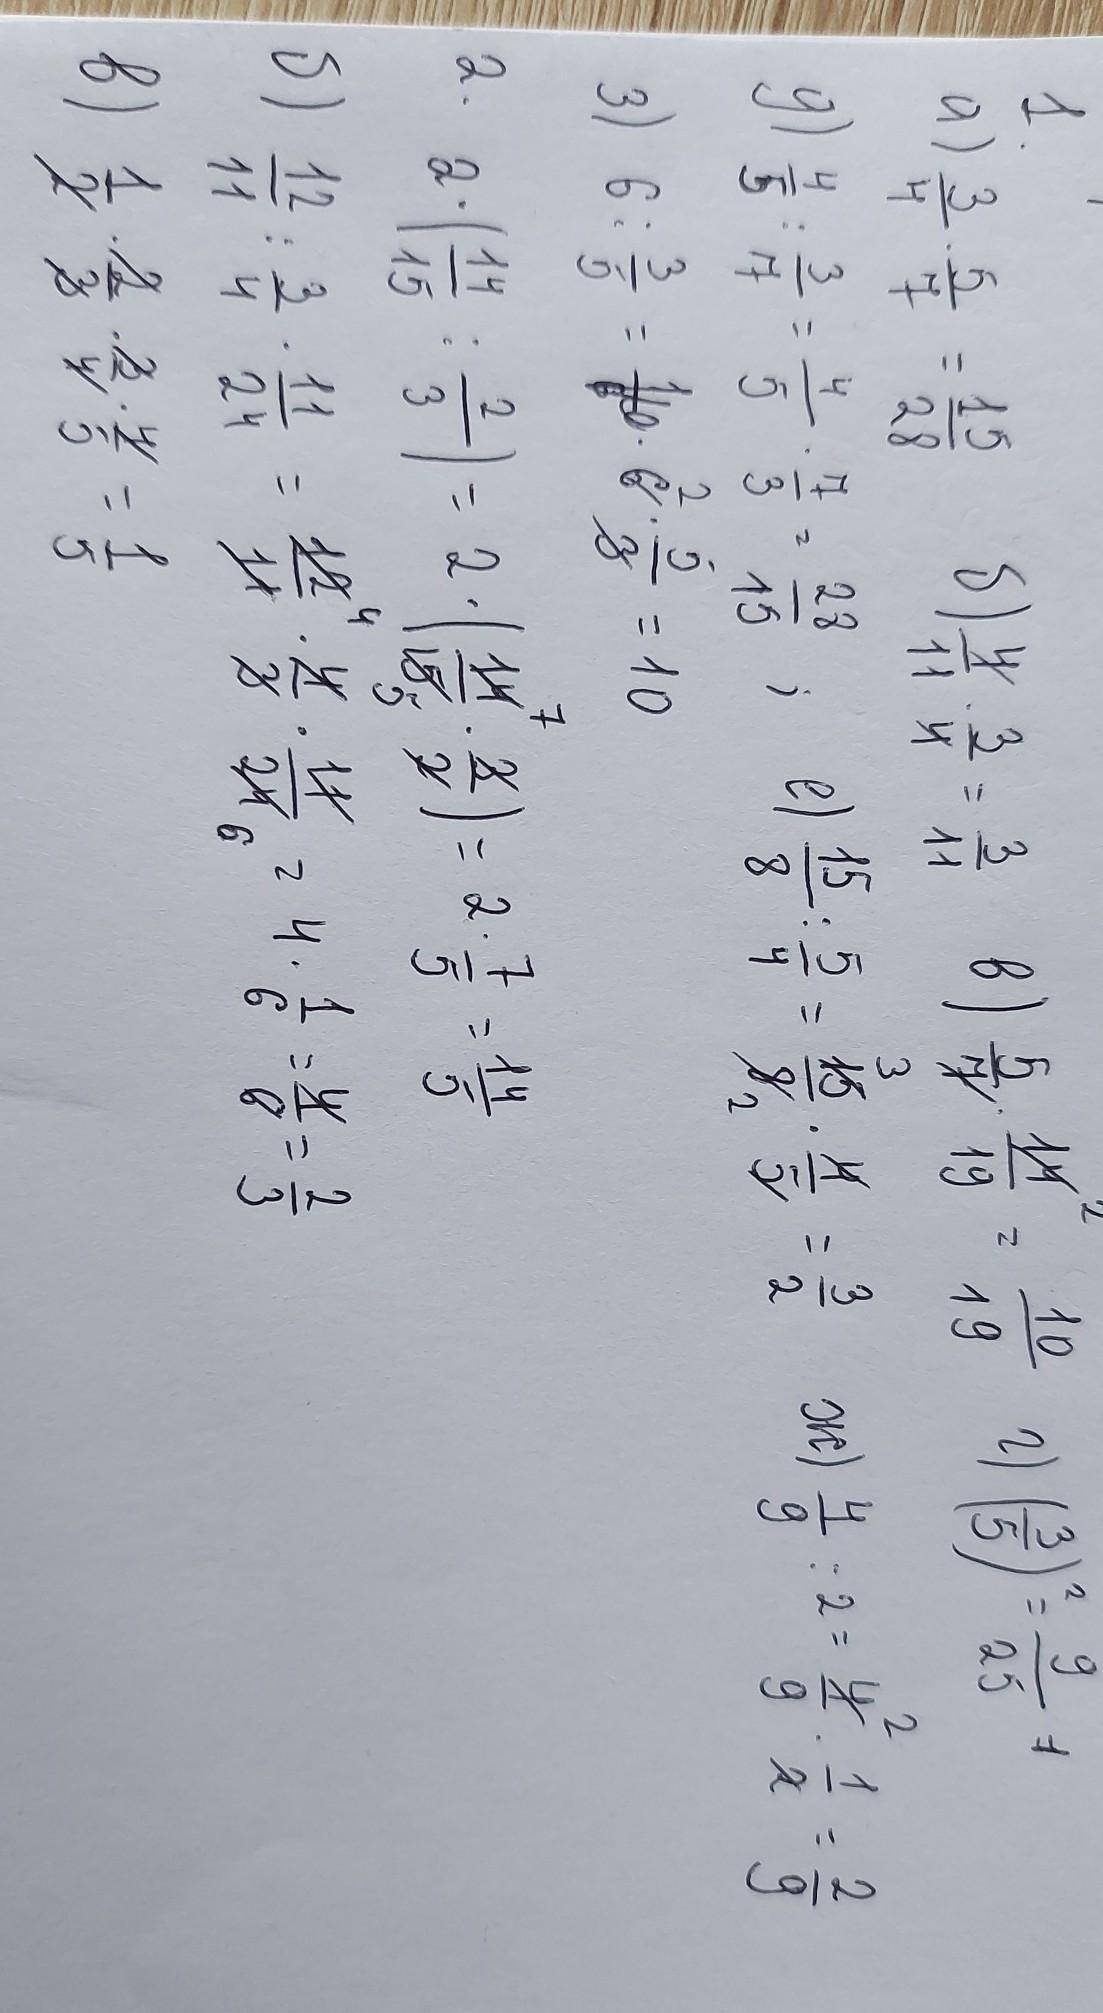 1.
а) 3/4 · 5/7 = 15/28 б) 4/11 · 3/4 = 3/11 в) 5/7 · 14/19 ² = 10/19 г) (3/5)² = 9/25
д) 4/5 : 3/7 = 4/5 · 7/3 = 28/15 ; е) 15/8 : 5/4 = 15/8 ³ ₂ · 4/5 = 3/2 ж) 4/9 : 2 = 4/9 ² · 1/2 = 2/9
з) 6 : 3/5 = 6 ² · 5/3 = 10
2. 2 · (14/15 : 2/3) = 2 · (14/15 ⁷ ₅ · 3/2) = 2 · 7/5 = 14/5
б) 12/11 : 3/4 · 11/24 = 12/11 ⁴ · 4/3 · 11/24 ₆ = 4 · 1/6 = 4/6 = 2/3
в) 1/2 · 2/3 · 3/4 · 4/5 = 1/5